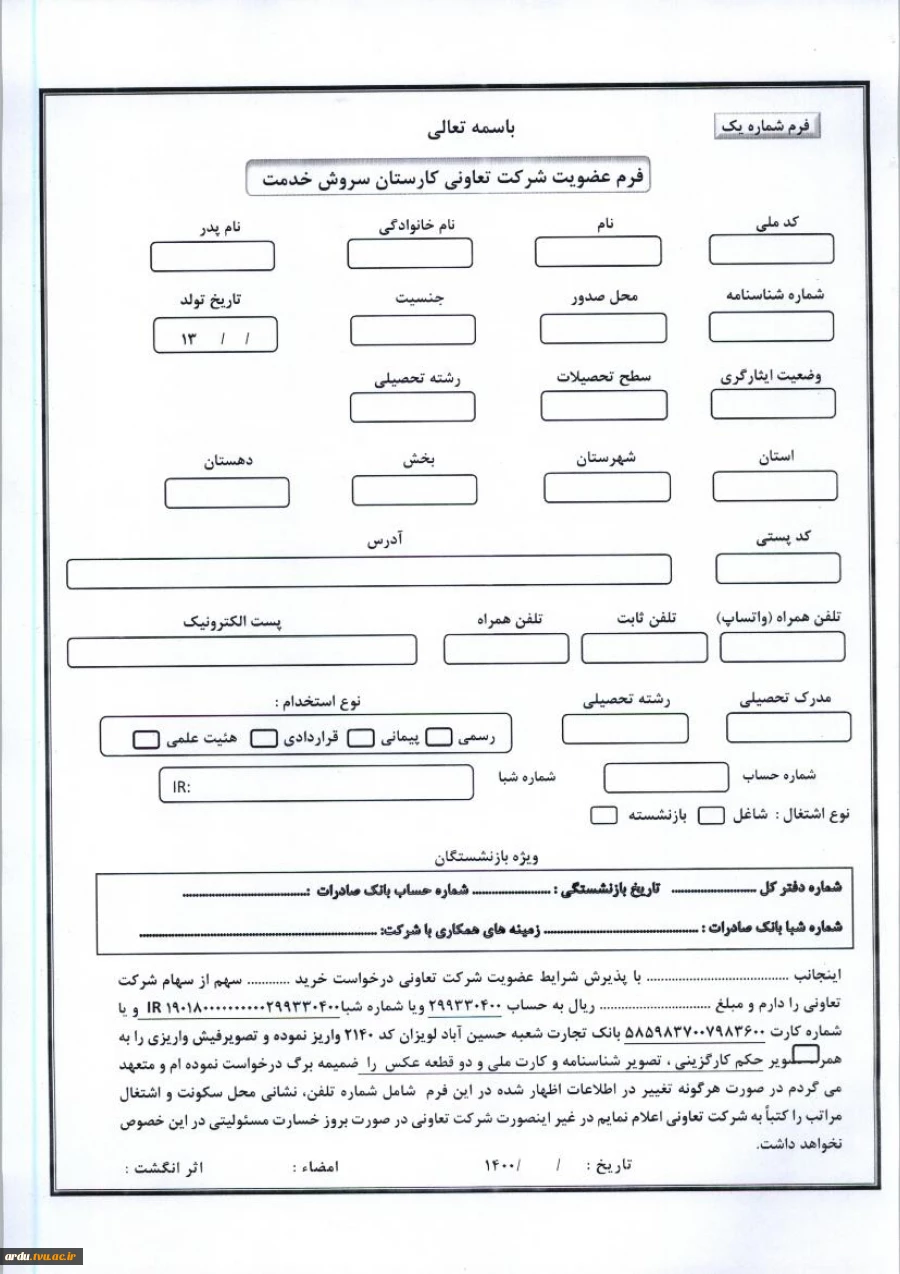 فرم شماره یک
باسمه تعالی
فرم عضویت شرکت تعاونی کارستان سروش خدمت
کد ملی نام نام خانوادگی نام پدر
شماره شناسنامه محل صدور جنسیت تاریخ تولد
/ / ۱۳
وضعیت ایثارگری سطح تحصیلات رشته تحصیلی
استان شهرستان بخش دهستان
کد پستی آدرس
تلفن همراه (واتساپ) تلفن ثابت تلفن همراه پست الکترونیک
مدرک تحصیلی رشته تحصیلی نوع استخدام :
رسمی پیمانی قراردادی هئیت علمی
شماره حساب شماره شبا IR:
نوع اشتغال : شاغل بازنشسته
ویژه بازنشستگان
شماره دفتر کل ........................ تاریخ بازنشستگی : ...................... شماره حساب بانک صادرات :...................................
شماره شبا بانک صادرات : ............................................ زمینه های همکاری با شرکت: ....................................................................
اینجانب ........................................ با پذیرش شرایط عضویت شرکت تعاونی درخواست خرید ............ سهم از سهام شرکت
تعاونی را دارم و مبلغ ................................ ریال به حساب ۲۹۹۳۳۰۴۰۰ ویا شماره شبا IR ۱۹۰۱۸۰۰۰۰۰۰۰۰۰۰۲۹۹۳۳۰۴۰۰ و یا
شماره کارت ۵۸۵۹۸۳۷۰۰۷۹۸۳۶۰۰ بانک تجارت شعبه حسین آباد لویزان کد ۲۱۴۰ واریز نموده و تصویرفیش واریزی را به
حکم کارگزینی ، تصویر شناسنامه و کارت ملی و دو قطعه عکس را ضمیمه برگ درخواست نموده ام و متعهد
می گردم در صورت هرگونه تغییر در اطلاعات اظهار شده در این فرم شامل شماره تلفن، نشانی محل سکونت و اشتغال
مراتب را کتباً به شرکت تعاونی اعلام نمایم در غیر اینصورت شرکت تعاونی در صورت بروز خسارت مسئولیتی در این خصوص
نخواهد داشت.
تاریخ : / /۱۴۰۰ امضاء : اثر انگشت :
ardu.tvu.ac.ir